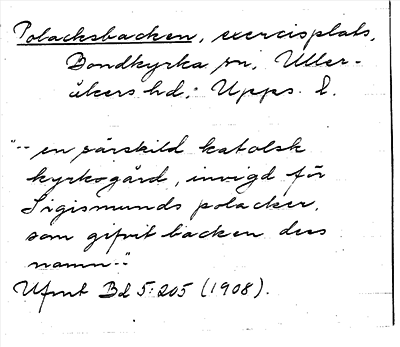 Polacksbacken, exercisplats,
Bondkyrka sn, Uller-
åkers hd, Upps. l.
"-- en särskild katolsk
kyrkogård, invigd för
Sigismunds polacker,
som gifvit backen dess
namn--"
Ufmt Bd 5:205 (1908).